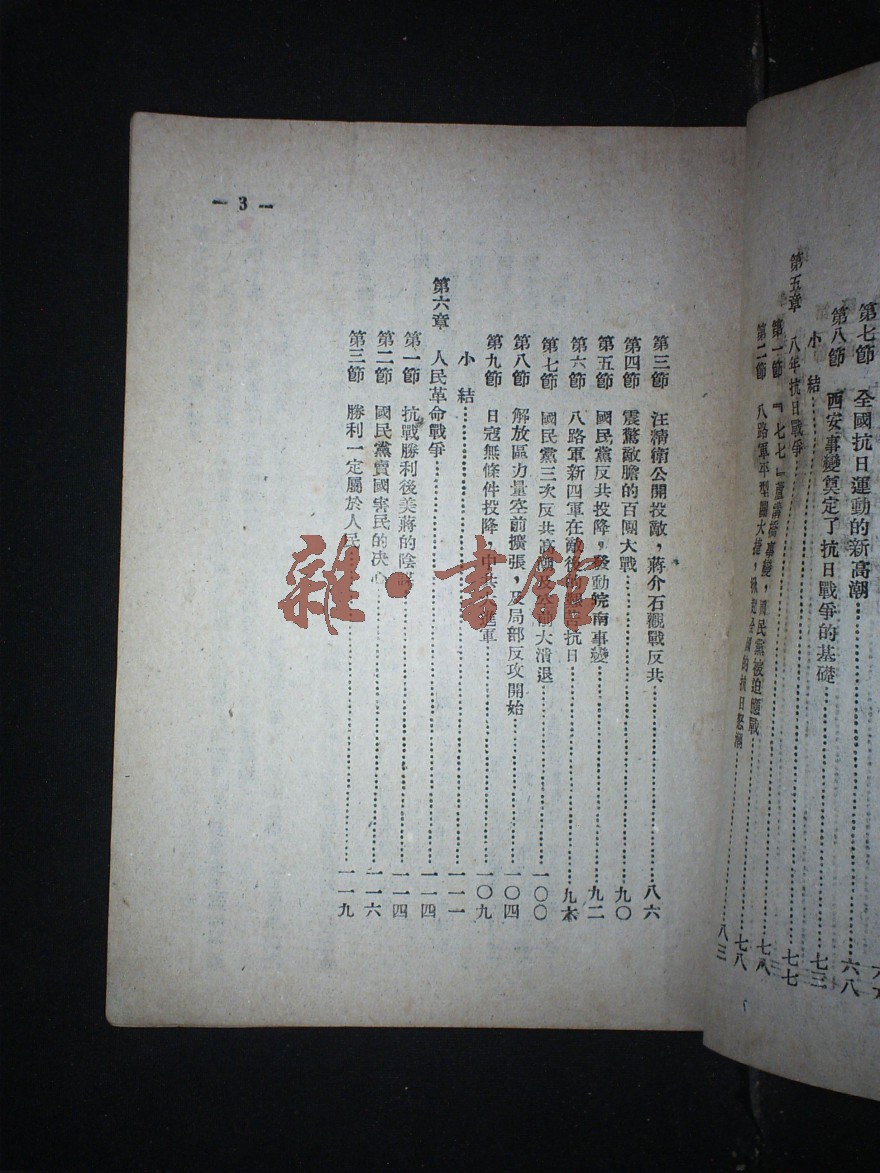 第七節 全國抗日運動的新高潮
第八節 西安事變奠定了抗日戰爭的基礎 六八
小結 七三
第五章 八年抗日戰爭 七七
第一節 『七七』蘆溝橋事變，國民黨被迫應戰
第二節 八路軍平型關大捷，掀起全國的抗日怒潮 七八
八三
— 3 —
第三節 汪精衛公開投敵，蔣介石觀戰反共 八六
第四節 震驚敵膽的百團大戰 九〇
第五節 國民黨反共投降，發動皖南事變 九二
第六節 八路軍新四軍在敵後的 抗日
第七節 國民黨三次反共高潮及 大潰退 一〇〇
第八節 解放區力量空前擴張，及局部反攻開始 一〇四
第九節 日寇無條件投降，中共大進軍 一〇九
小結 一一一
第六章 人民革命戰爭 一一四
第一節 抗戰勝利後美蔣的陰謀 一一四
第二節 國民黨賣國害民的決心 一一六
第三節 勝利一定屬於人民 一一九
雜·書館